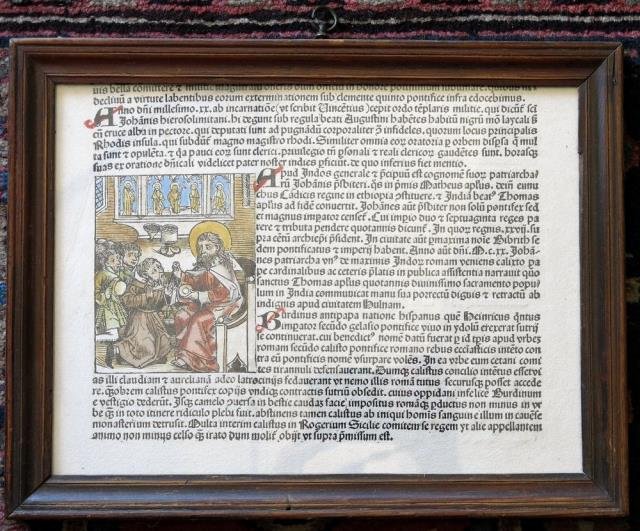 declivū a virtute labentibus eorum exterminationem sub clemente quinto pontifice infra edocebimus.
Anno dñi millesimo. xx. ab incarnatiōe (vt scribit Vincētius) cepit ordo tēplaris militie. qui dicūt sci
Johānis hierosolimitani. hi degunt sub regula beati Augustini habētes habitū nigrū mō laycali sꝫ
cū cruce alba in pectore. qui deputati sunt ad pugnādū corporaliter ꝯ infideles. quorum locus principalis
Rhodis insula. qui subduntᷣ magno magistro rhodi. Similiter omnia eorū oratoria ꝑ orbem dispsa q̄ mul
ta sunt ⁊ opulēta. et q̄a pauci eorū sunt clerici. priuilegio tñ psonali ⁊ reali clericorū gaudētes sunt. horasqꝫ
suas ex oratione dñicali videlicet pater noster indies pficiūt. de quo inferius fiet mentio.
Apud Indos generale ⁊ p̄cipuū est cognomē suorū patriarcharū
Johānis p̄sbiteri. q̄s in p̄mis Matheus apl̄us. dein eunu
chus Cādicis regine in ethiopia ꝯstituere. et India beatᷣ Thomas
apl̄us ad fidē conuertit. Johānes aūt p̄sbiter non solū pontifex sed
et magnus impator censetᷣ. Cui impio duo ⁊ septuaginta reges pa
rere ⁊ tributa pendere quotannis dicuntᷣ. In quorū regnis. xxvij. su
pra cētū archiepi p̄sident. In ciuitate aūt ꝑmaxima noīe Bibrith se
dem pontificatus ⁊ imperij habent. Anno aūt dñi. M.c.xx. Johā-
nes patriarcha vnᷣ de maximis Indorū romam veniens calixto pa
pe cardinalibus ac ceteris p̄latis in publica assistentia narrauit quo
sanctus Thomas apl̄us quotannis diuinissimo sacramento popu
lum in India communicat manu sua porrectū dignis ⁊ retractū ab
indignis apud ciuitatem Hulnam.
Burdinus antipapa natione hispanus quē Heinricus quntus
impator secūdo gelasio pontifice viuo in ydolū erexerat sutrij
se continuerat. cui benedictᷣ nomē datū fuerat
romam secūdo calisto pontifice romano rebus ecclasticis intēto con
tra eū pontificis nomē vsurpare volēs. In ea vrbe eum cetani comi
tes tirannuli defensauerant. Dumqꝫ calistus concilio intētus esset
as illi claudiam ⁊ aureliana adeo latrocinijs fedauerant vt nemo illis romā tutus securusqꝫ posset accede
re. q̄obrem calistus pontifex copijs vndiqꝫ contractis sutriū obsedit. cuius oppidani infelicē Burdinum
e vestigio dederūt. Isqꝫ camelo ꝓuersa in bestie caudas facie impositus romāqꝫ ꝓductus non minus in vr
be q̄ in toto itinere ridiculo plebi fuit. abstinens tamen calistus ab iniqui homīs sanguine illum in cauēse
monasterium detrusit. Multa interim calistus in Rogerium Sicilie comitem se regem vt alie appellantem
animo non minus celso q̄ irato dum molitᷣ. obijt vt supra p̄missum est.